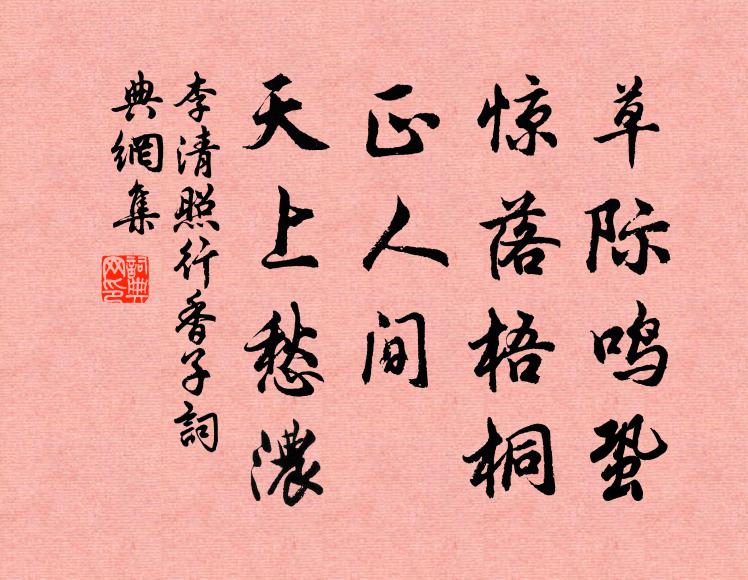 草际鸣蛩
惊落梧桐
正人间
天上愁濃
李清照行香子詞
典網集
詞典
网印